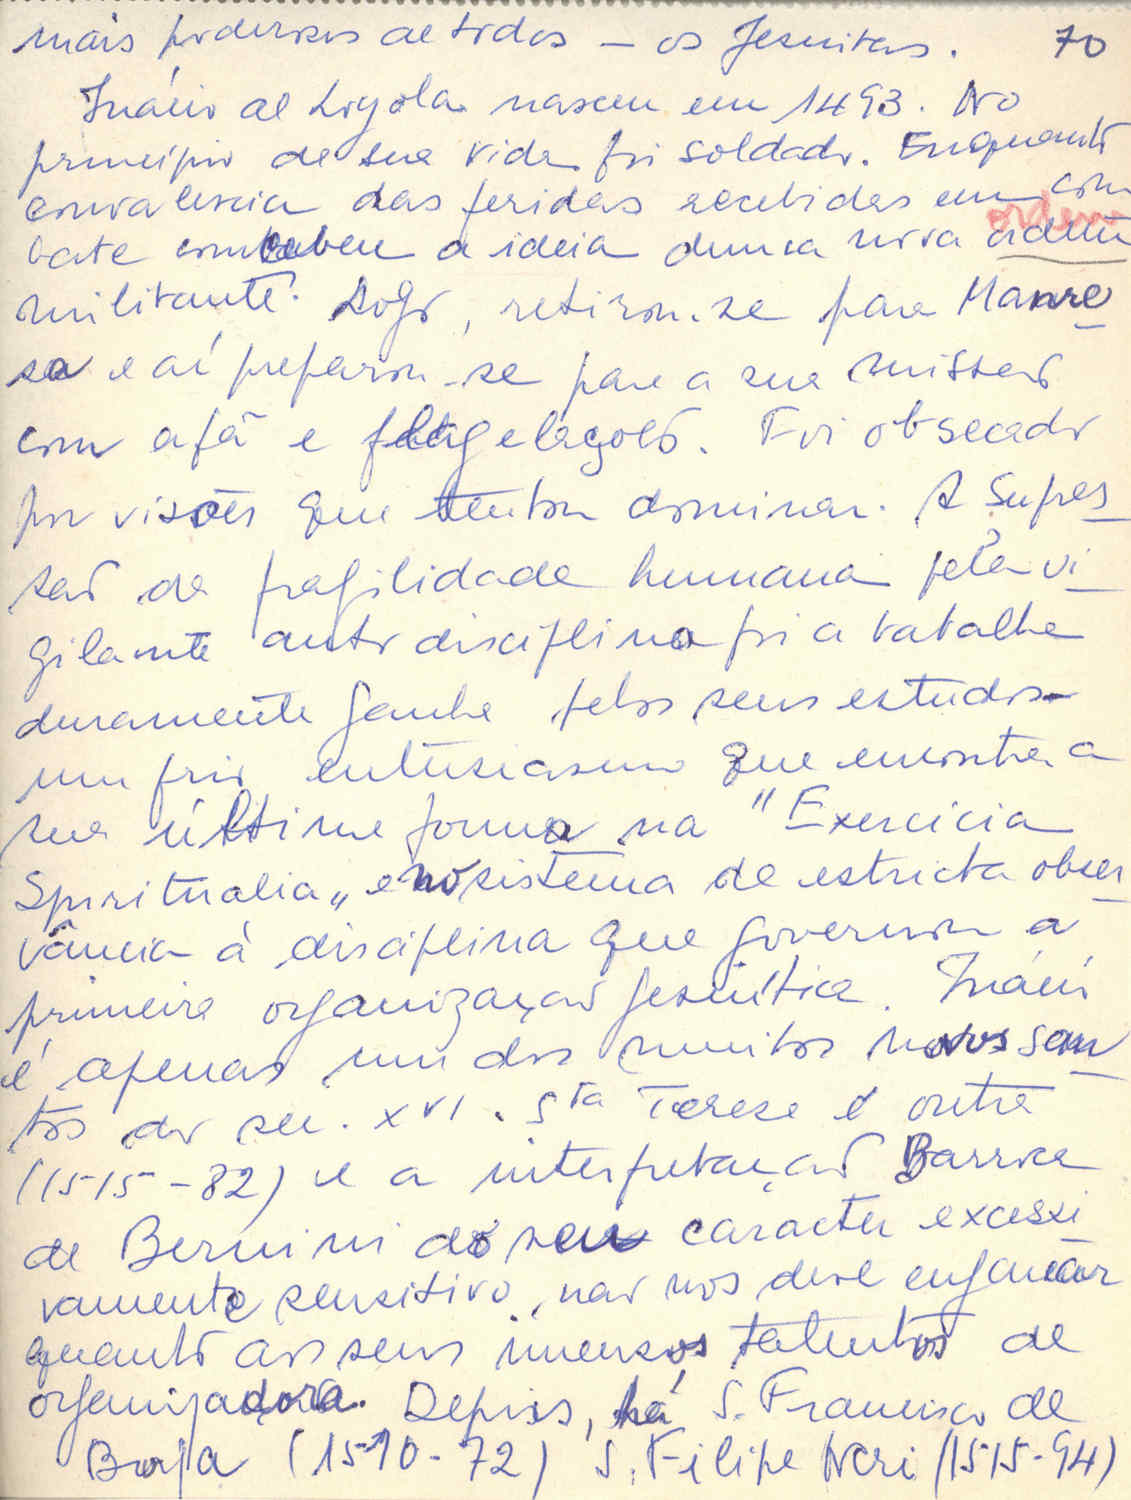 mais poderosos de todos – os Jesuitas. 70
Inácio de Loyola nasceu em 1493. No
principio de sua vida foi soldado. Enquanto
convalescia das feridas recebidas em com
ordem
bate concebeu a ideia duma nova ordem
militante. Logo, retirou-se para Manre
sa e aí preparou-se para a sua missão
com afã e flagelação. Foi obsecado
por visões que tentou dominar. A supres
são da fragilidade humana pela vi
gilante auto disciplina foi a batalha
duramente ganha pelos seus estudos
um frio entusiasmo que encontra a
sua última forma na "Exercicia
Spiritualia„ e no sistema de estricta obser
vância à disciplina que governou a
primeira organização Jesuítica. Inácio
é apenas um dos muitos novos san
tos do sec. XVI. Sta Teresa é outra
(1515-82) e a interpretação Barroca
de Bernini do seu caracter excessi
vamente sensitivo, não nos deve enganar
quanto aos seus imensos talentos de
organizadora. Depois, há S. Francisco de
Borja (1510-72) S. Filipe Neri (1515-94)